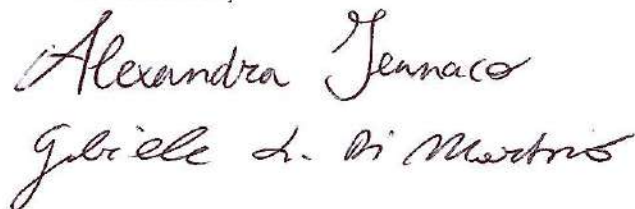 Alexandra Iennaco
Gabriele L. Di Martino